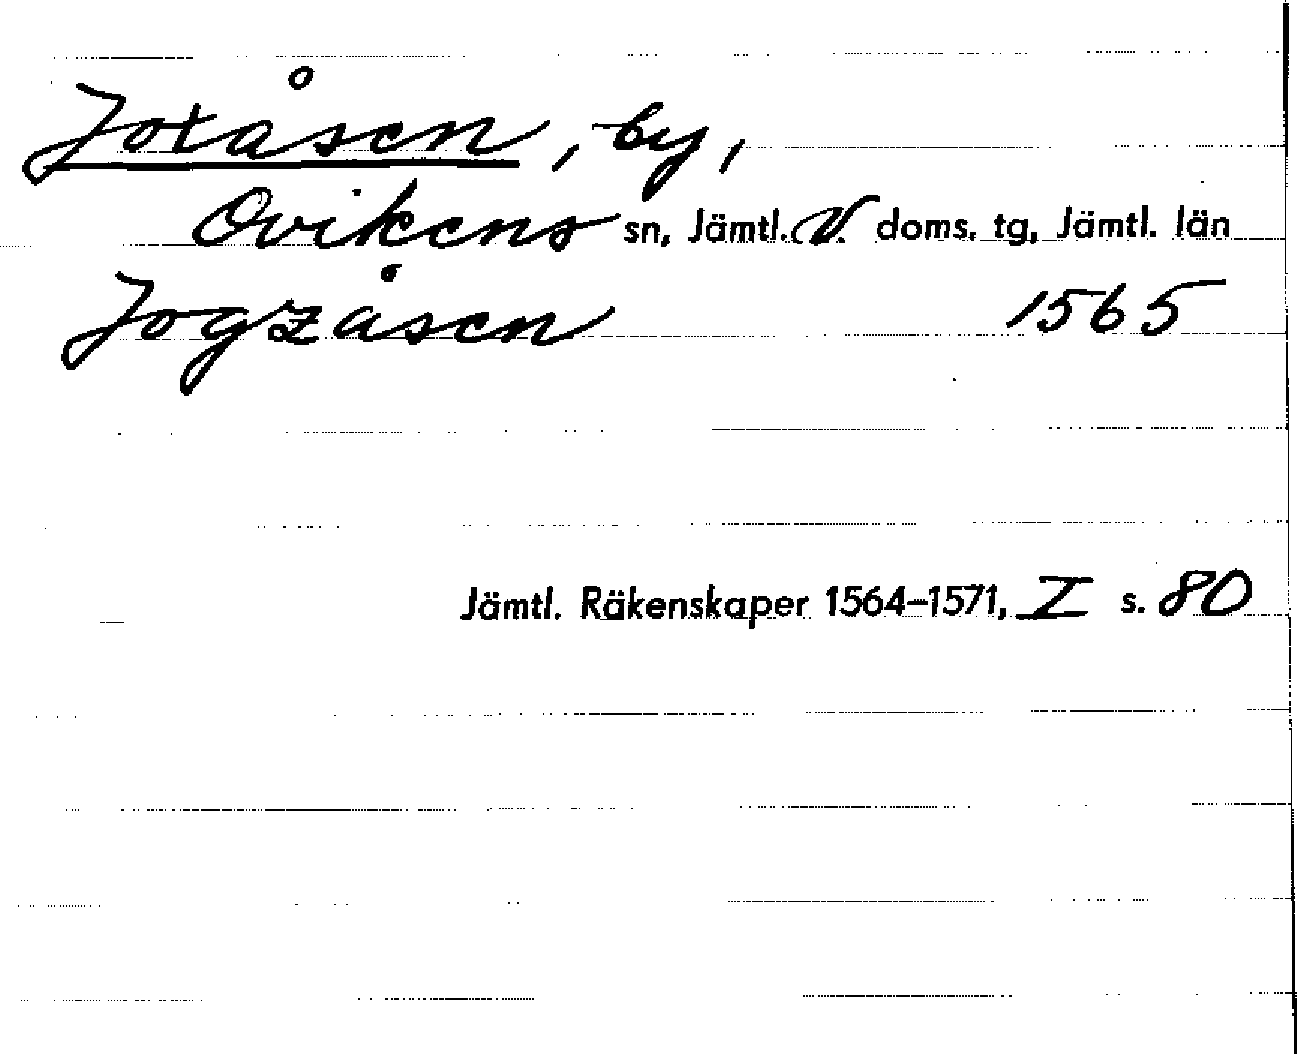 Joxåsen, by,
Ovikens sn, Jämtl. V. doms. tg, Jämtl. län
Jogzåsen 1565
Jämtl. Räkenskaper 1564–1571, I s. 80